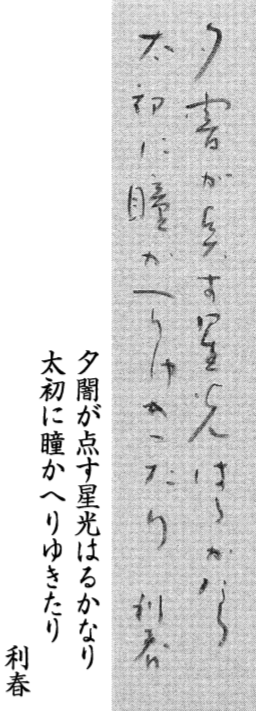 夕闇が点す星光はるかなり
太初に瞳かへりゆきたり
利春
夕闇が点す星光はるかなり
太初に瞳かへりゆきたり
利春